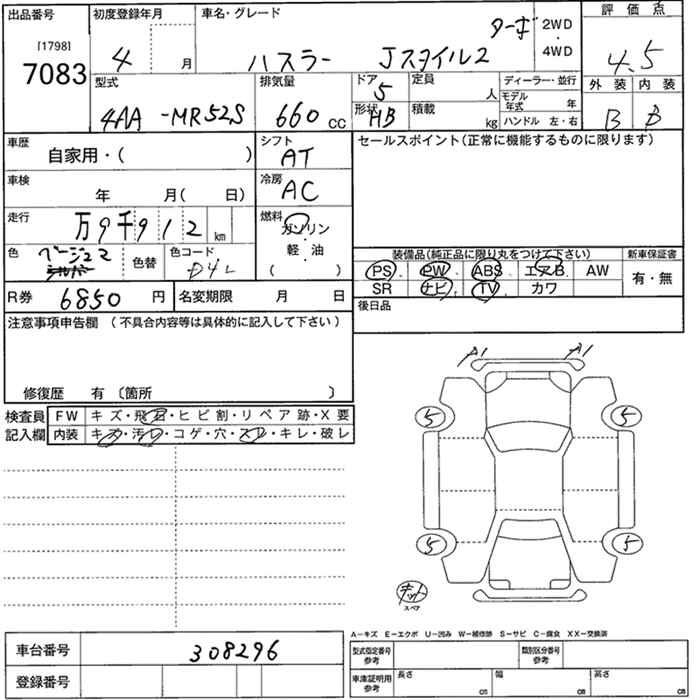 出品番号
[1798]
7083
初度登録年月
4 月
車名・グレード
ハスラー Jスタイル2 ターボ
2WD
・
4WD
評価点
4.5
型式
4AA -MR52S
排気量
660 CC
ドア
5
形状
HB
定員
人
積載
kg
ディーラー・並行
モデル年式 年
ハンドル 左・右
外装 内装
B B
車歴
自家用・( )
シフト
AT
セールスポイント(正常に機能するものに限ります)
車検
年 月( 日)
冷房
AC
走行
万9千912 km
燃料
ガソリン
・
軽・油
( )
色
ベージュ2
シルバー
色替
色コード
D4L
装備品(純正品に限り丸をつけて下さい)
新車保証書
PS PW ABS エアB AW
有・無
SR ナビ TV カワ
R券 6850 円
名変期限 月 日
後日品
注意事項申告欄 (不具合内容等は具体的に記入して下さい)
修復歴 有 〔箇所 〕
検査員
記入欄
FW キズ・飛石・ヒビ割・リペア跡・X要
内装 キズ・汚レ・コゲ・穴・スレ・キレ・破レ
A1 A1
5 5
5 5
キット
スペア
A−キズ E−エクボ U−凹み W−補修跡 S−サビ C−腐食 XX−交換済
車台番号 308296
登録番号
型式指定番号
参考
類別区分番号
参考
車庫証明用
参考
長さ cm
幅 cm
高さ cm